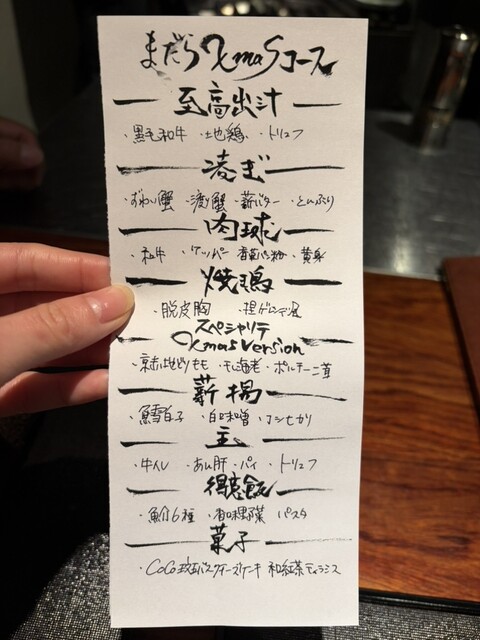 まだら XmaSコース
至高出汁
・黒毛和牛 ・地鶏 ・トリュフ
凌ぎ
・ずわい蟹 ・渡り蟹 ・薪バター ・とんぶり
肉球
・和牛 ・ケッパー 香草パン粉 ・黄身
焼鶏
・脱皮胸
スペシャリテ
XmasVersion
・京赤地どりもも ・干し海老 ・ポルチーニ茸
薪揚
・鱈白子 ・白味噌 ・コシヒカリ
主
・牛ヒレ ・あん肝 ・パイ ・トリュフ
得意飯
・魚介6種 ・香味野菜 パスタ
菓子
・CoCo バスクチーズケーキ 和紅茶ティラミス